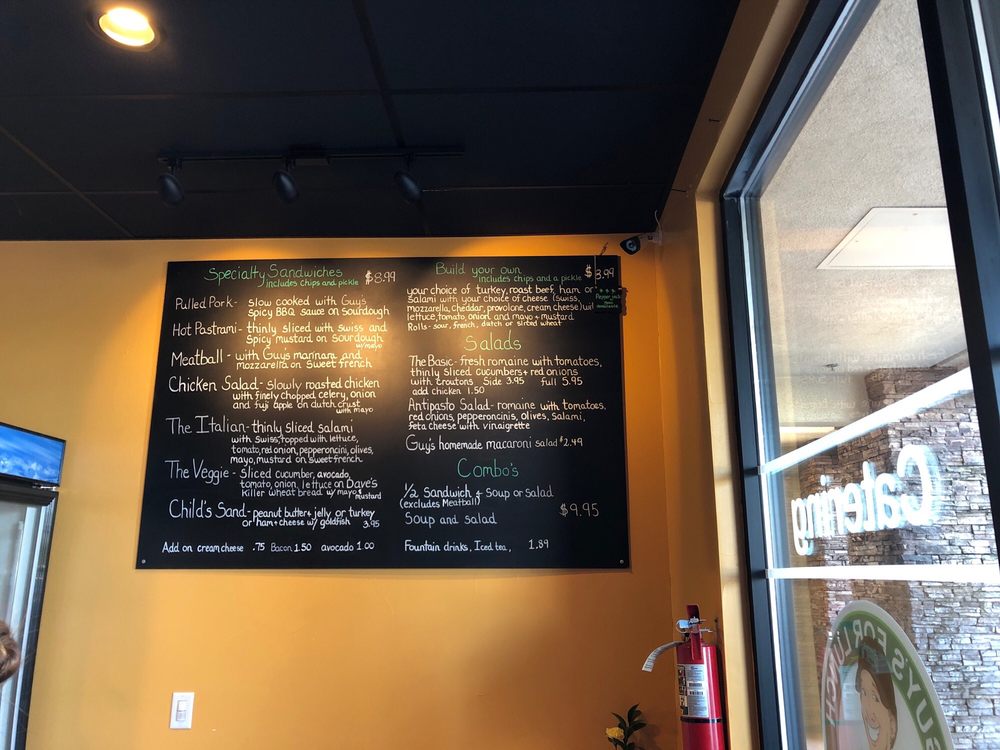 Specialty Sandwiches
includes chips and pickle $8.99
Pulled Pork- slow cooked with Guy's
spicy BBQ sauce on sourdough
Hot Pastrami- thinly sliced with swiss and
spicy mustard on sourdough
w/mayo
Meatball- with Guy's marinara and
mozzarella on sweet french
Chicken Salad- slowly roasted chicken
with finely chopped celery, onion
and fuji apple on dutch crust
with mayo
The Italian- thinly sliced salami
with swiss, topped with lettuce,
tomato, red onion, pepperoncini, olives,
mayo, mustard on sweet french
The Veggie- sliced cucumber, avocado,
tomato, onion, lettuce on Dave's
killer wheat bread w/ mayo &
mustard
Child's Sand- peanut butter+ jelly or turkey
or ham+cheese w/ goldfish 3.95
Add on cream cheese .75 Bacon 1.50 avocado 1.00
Build your own
includes chips and a pickle $8.99
your choice of turkey, roast beef, ham or
salami with your choice of cheese (swiss,
mozzarella, cheddar, provolone, cream cheese) w/
lettuce, tomato, onion and mayo + mustard
Rolls- sour, french, dutch or sliced wheat
Pepper jack
Salads
The Basic- fresh romaine with tomatoes,
thinly sliced cucumbers+ red onions
with croutons Side 3.95 full 5.95
add chicken 1.50
Antipasto Salad- romaine with tomatoes,
red onions, pepperoncinis, olives, salami,
feta cheese with vinaigrette
Guy's homemade macaroni salad $2.49
Combo's
1/2 Sandwich + Soup or Salad
(excludes Meatball)
Soup and salad $9.95
Fountain drinks, Iced tea, 1.89
Catering
GUYS FOR LUNCH